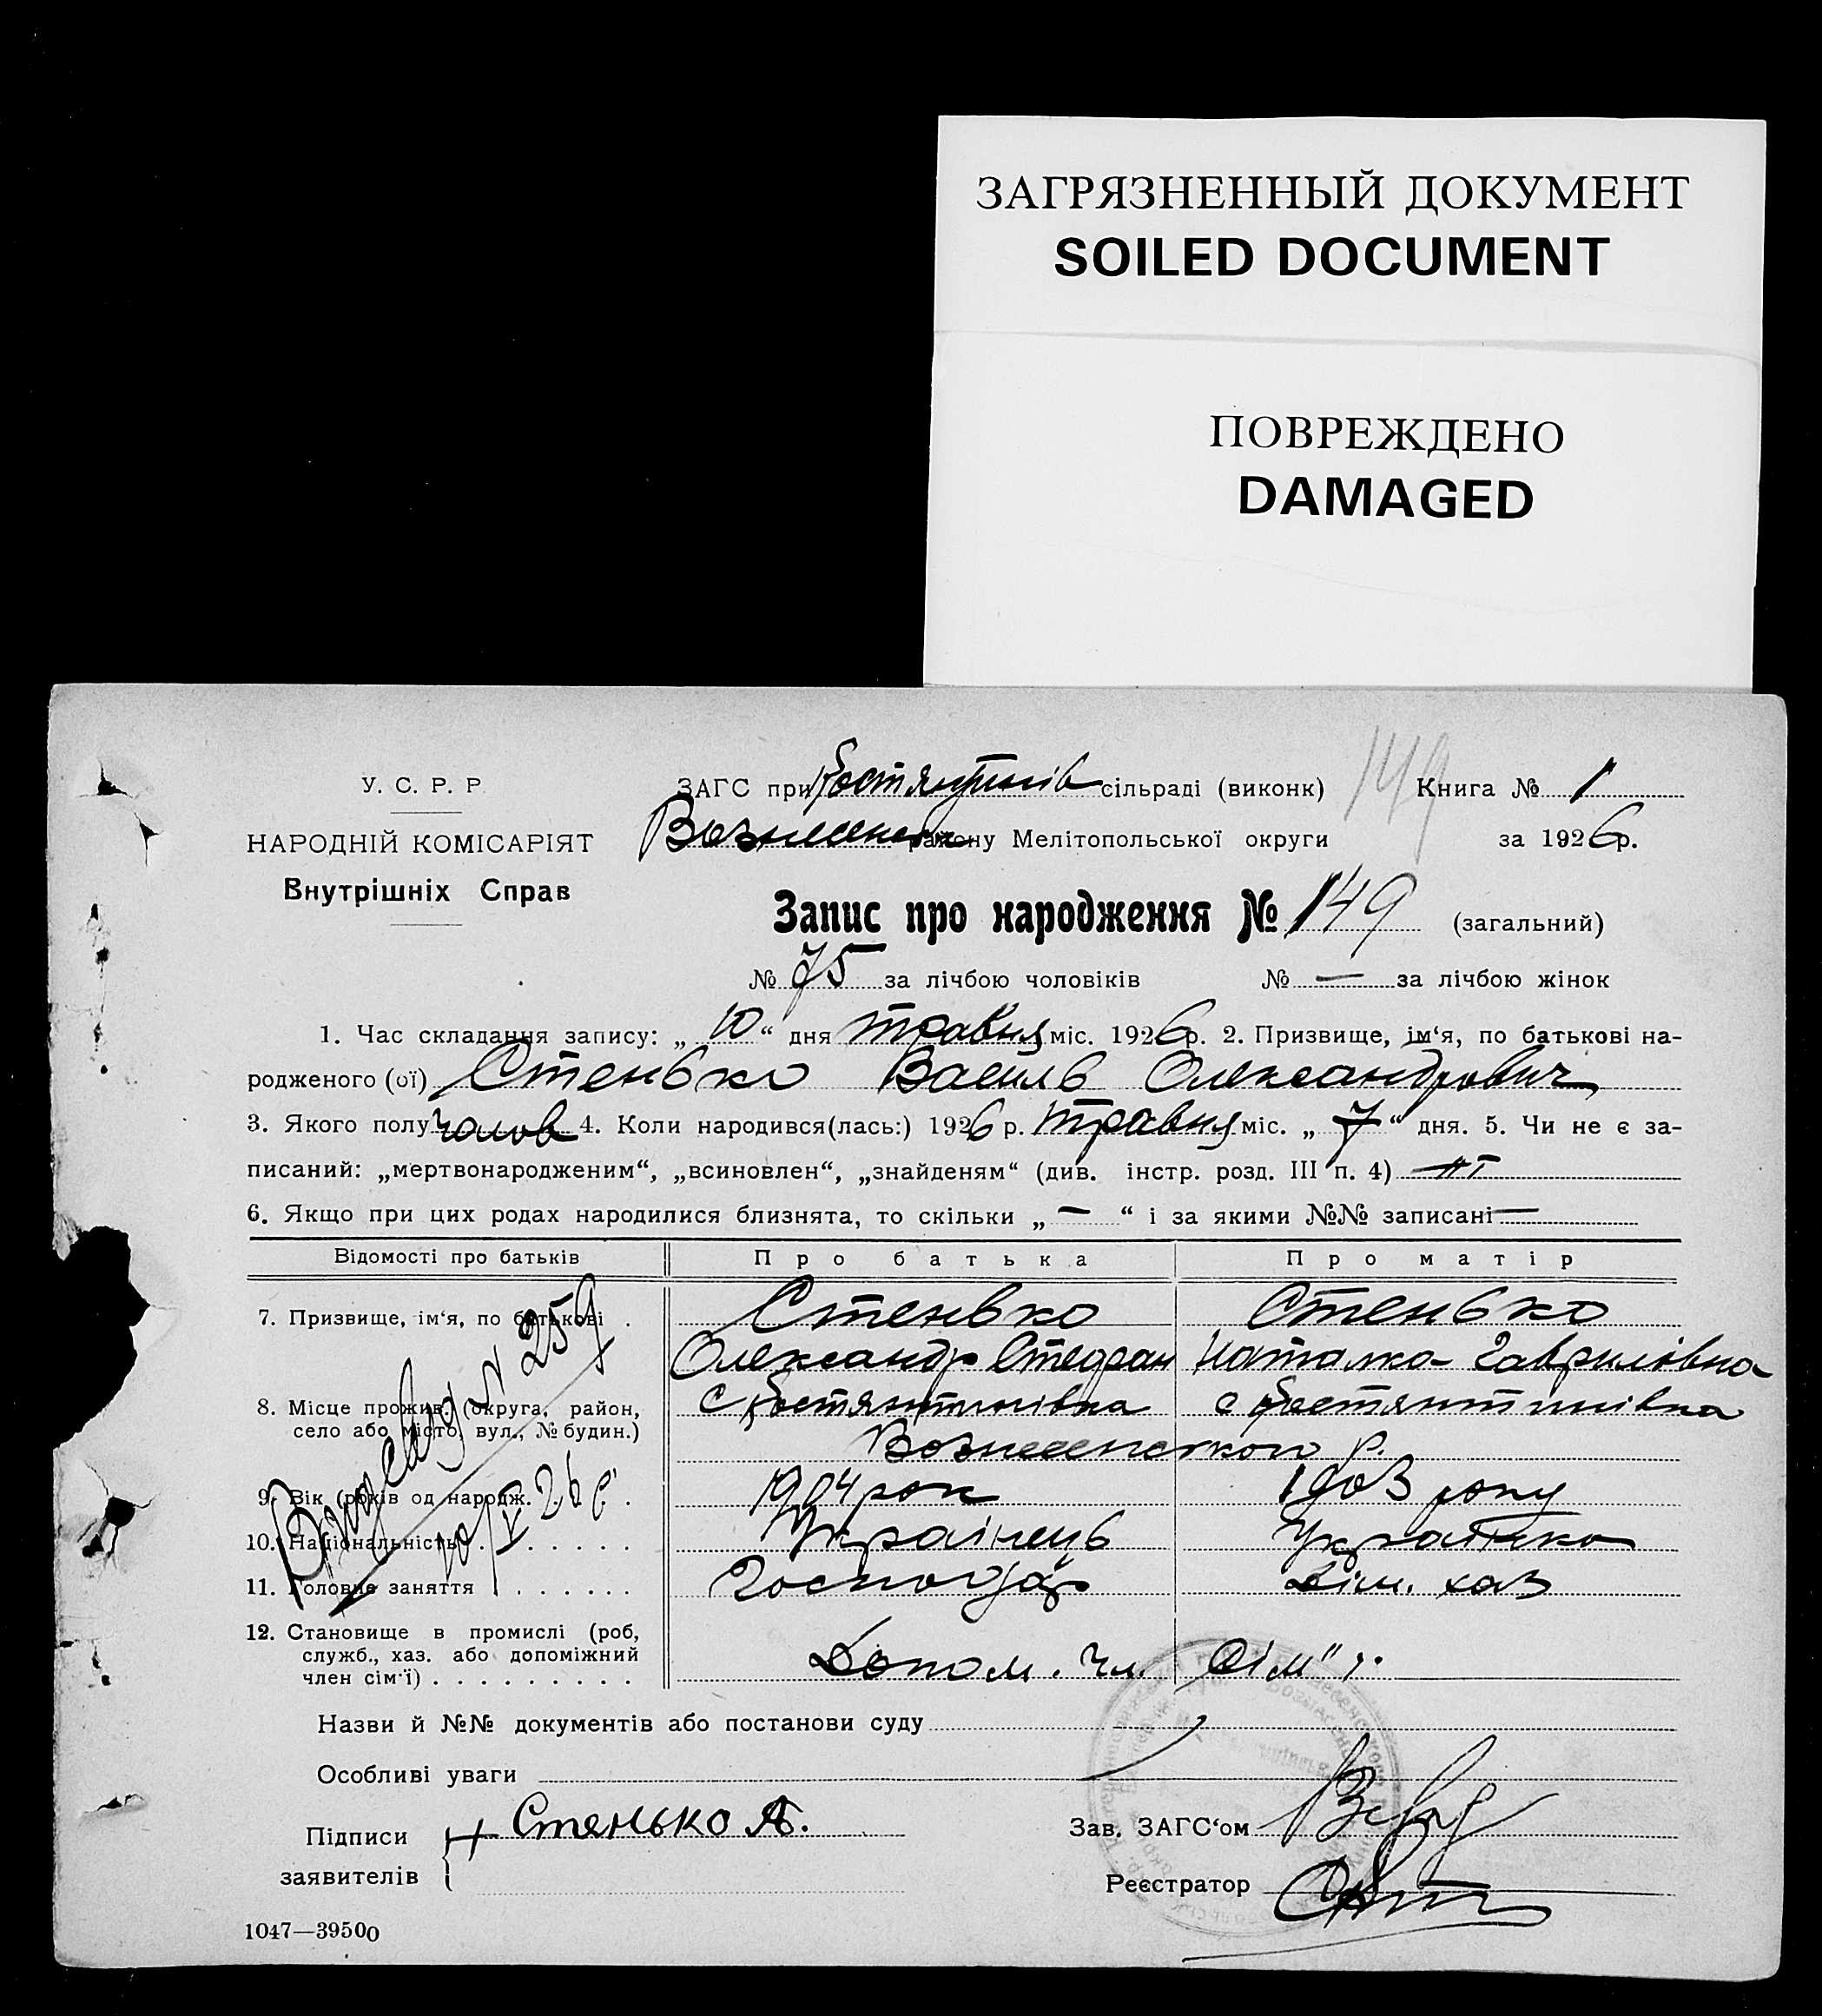 ЗАГРЯЗНЕННЫЙ ДОКУМЕНТ
SOILED DOCUMENT
ПОВРЕЖДЕНО
DAMAGED
У. С. Р. Р
НАРОДНІЙ КОМІСАРІЯТ
Внутрішніх Справ
ЗАГС при Костянтинів сільраді (виконк)
149
Книга № 1
Вознесенськ району Мелітопольської округи
за 1926 р.
Запис про народження № 149 (загальний)
№ 75 за лічбою чоловіків № — за лічбою жінок
1. Час складання запису: „ 10 “ дня травня міс. 1926 р. 2. Призвище, ім‘я, по батькові на-
родженого (ої) Стенько Василь Олександрович
3. Якого полу чолов 4. Коли народився(лась:) 1926 р. травня міс. „ 7 “ дня. 5. Чи не є за-
писаний: „мертвонародженим“, „всиновлен“, „знайденям“ (див. інстр. розд. III п. 4)
6. Якщо при цих родах народилися близнята, то скільки „ — “ і за якими №№ записані —
Відомості про батьків Про батька Про матір
7. Призвище, ім‘я, по батькові . Стенько Стенько
Олександр Стефан Наталка Гаврилівна
8. Місце прожив. (округа, район, с Костянтинівка с Костянтинівка
село або місто, вул., № будин.)
Вознесенського р.
9. Вік (років од народж. . 1904 рок 1903 року
10. Національність . . . . . . Українець Українка
11. Головне заняття . . . . . . Господар Дім. хаз
12. Становище в промислі (роб,
служб., хаз. або допоміжний
член сім‘ї) . . . . . . . . . Допом. чл. сім"ї.
№ 259
10/V 26 р.
Назви й №№ документів або постанови суду
Особливі уваги
Підписи
заявителів
+ Стенько А.
Зав. ЗАГС‘ом
Реєстратор
1047—39500